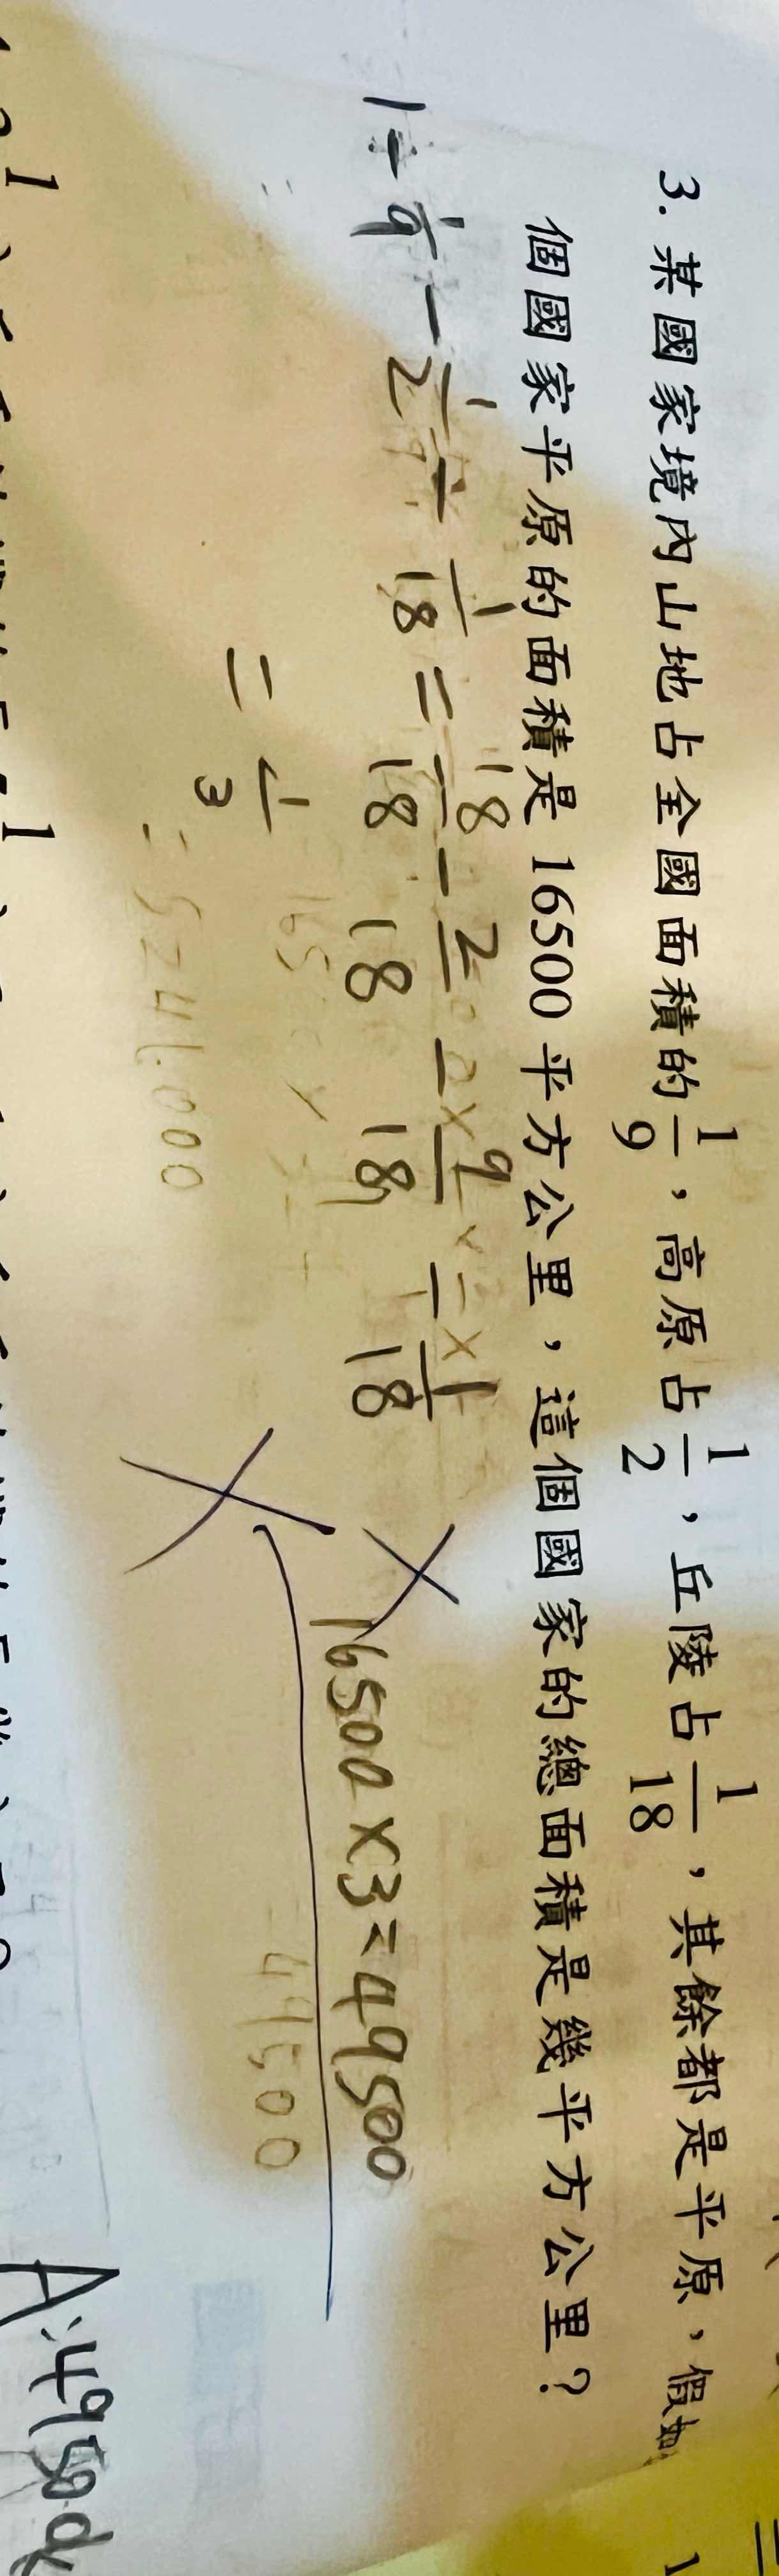 3. 某國家境內山地占全國面積的 1/9，高原占 1/2，丘陵占 1/18，其餘都是平原，假如
個國家平原的面積是 16500 平方公里，這個國家的總面積是幾平方公里？
1 - 1/9 - 1/2 - 1/18 = 18/18 - 2/18 - 9/18 - 1/18
= 1/3
16500 × 3 = 49500
A: 49500